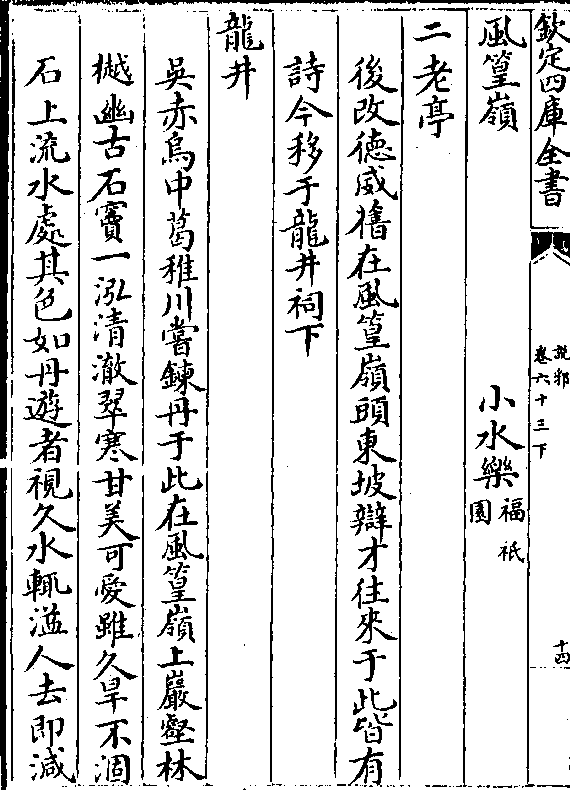 欽定四庫全書
說郛
卷六十三下
十四
風篁嶺　小水樂福祇園
二老亭
後改德威擼在風篁嶺頭東坡辯才徃來于此皆有
詩今移于龍井祠下
龍井
吳赤烏中葛稚川嘗鍊丹于此在風篁嶺上巖壑林
樾幽古石竇一泓清澈翠寒甘美可愛雖久旱不涸
石上流水處其色如丹遊者視久水輒溢人去即減